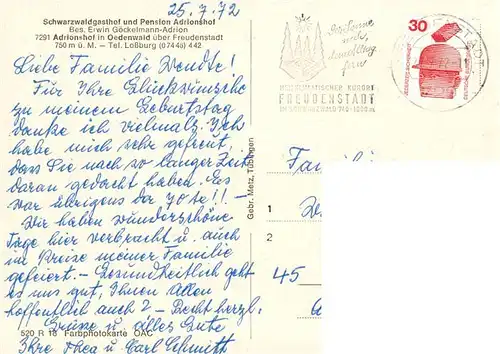 25.7.72
Schwarzwaldgasthof und Pension Adrionshof
Bes. Erwin Göckelmann-Adrion
7291 Adrionshof in Oedenwald über Freudenstadt
750 m ü. M – Tel. Loßburg (0744a) 442
Liebe Familie Wendte!
Für Ihre Glückwünsche
zu meinem Geburtstag
danke ich vielmals. Ich
habe mich sehr gefreut,
dass Sie nach so langer Zeit
daran gedacht haben. Es
war übrigens der 70te!! –
Wir haben wunderschöne
Tage hier verbracht u. auch
im Kreise meiner Familie
gefeiert. – Gesundheitlich geht
es uns gut, Ihnen Allen
hoffentlich auch? – Recht herzl.
Grüsse u. alles Gute
Ihre Thea u. Carl Schmitt
520 R 18 Farbphotokarte ÖAC
Gebr. Metz, Tübingen
HEILKLIMATISCHER KURORT
FREUDENSTADT
IM SCHWARZWALD 740-1000 m
30
Famili
1
2
45